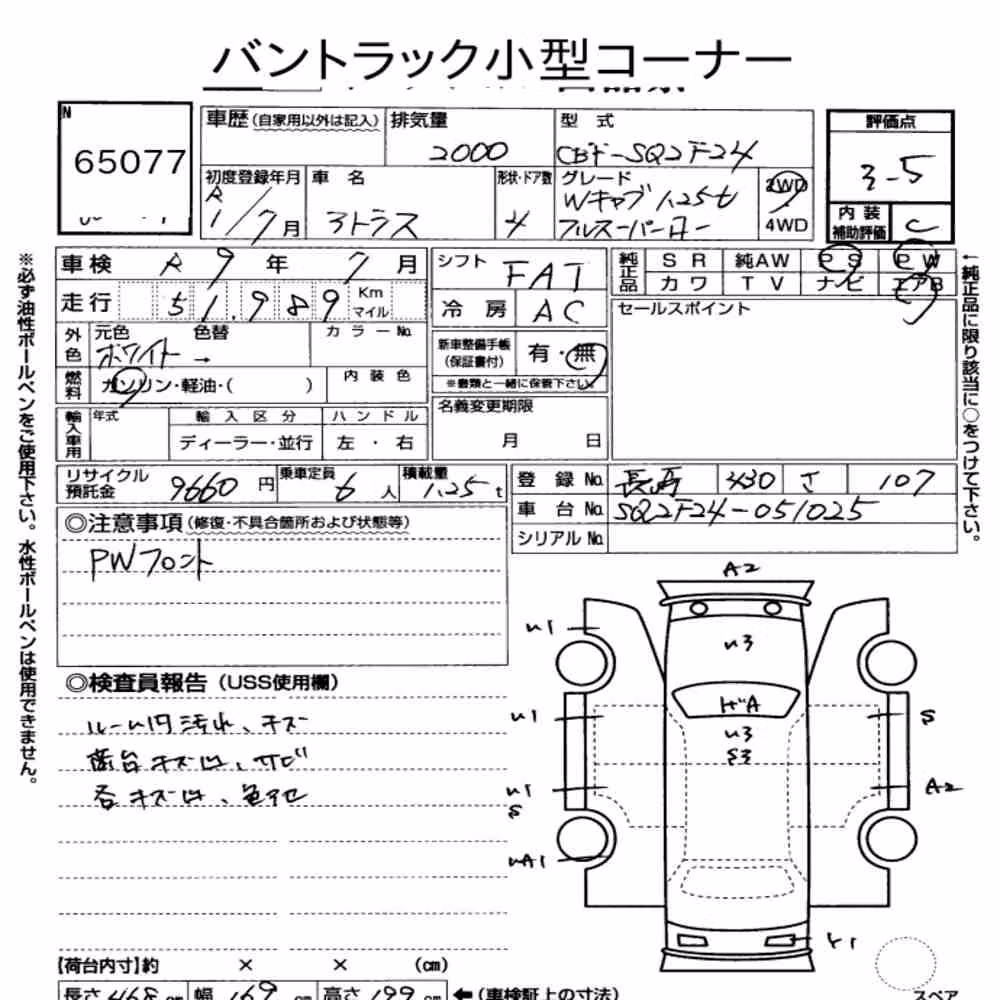 バントラック小型コーナー
N
65077
車歴(自家用以外は記入)
排気量
2000
型式
CBF-SQ2F24
評価点
3-5
初度登録年月
R
1/7月
車名
アトラス
形状・ドア数
4
グレード
Wキャブ 1.25t
フルスーパーロー
2WD
4WD
内装
補助評価
C
車検 R 9年 7月
シフト FAT
純正品
SR 純AW PS PW
カワ TV ナビ エアB
走行 51,989 Km
マイル
冷房 AC
セールスポイント
外色
元色 色替 カラーNo.
ホワイト →
新車整備手帳
(保証書付)
有・無
※書類と一緒に保管下さい。
燃料
ガソリン・軽油・( )
内装色
名義変更期限
月 日
輸入車用
年式 輸入区分 ハンドル
ディーラー・並行 左・右
リサイクル
預託金 9660円
乗車定員 6人
積載量 1.25t
登録No. 330 さ 107
車台No. SQ2F24-051025
シリアルNo.
◎注意事項(修復・不具合箇所および状態等)
PWフロント
◎検査員報告(USS使用欄)
ルーム内汚れ、キズ
荷台キズ凹、サビ
各キズ凹、色アセ
A2
U1
U3
U1
ガA
S
U3
S3
U1
S
A2
UA1
Y1
スペア
【荷台内寸】約 × × (cm)
長さ 468 cm 幅 169 cm 高さ 199 cm ←(車検証上の寸法)
※必ず油性ボールペンをご使用下さい。水性ボールペンは使用できません。
←純正品に限り該当に○をつけて下さい。